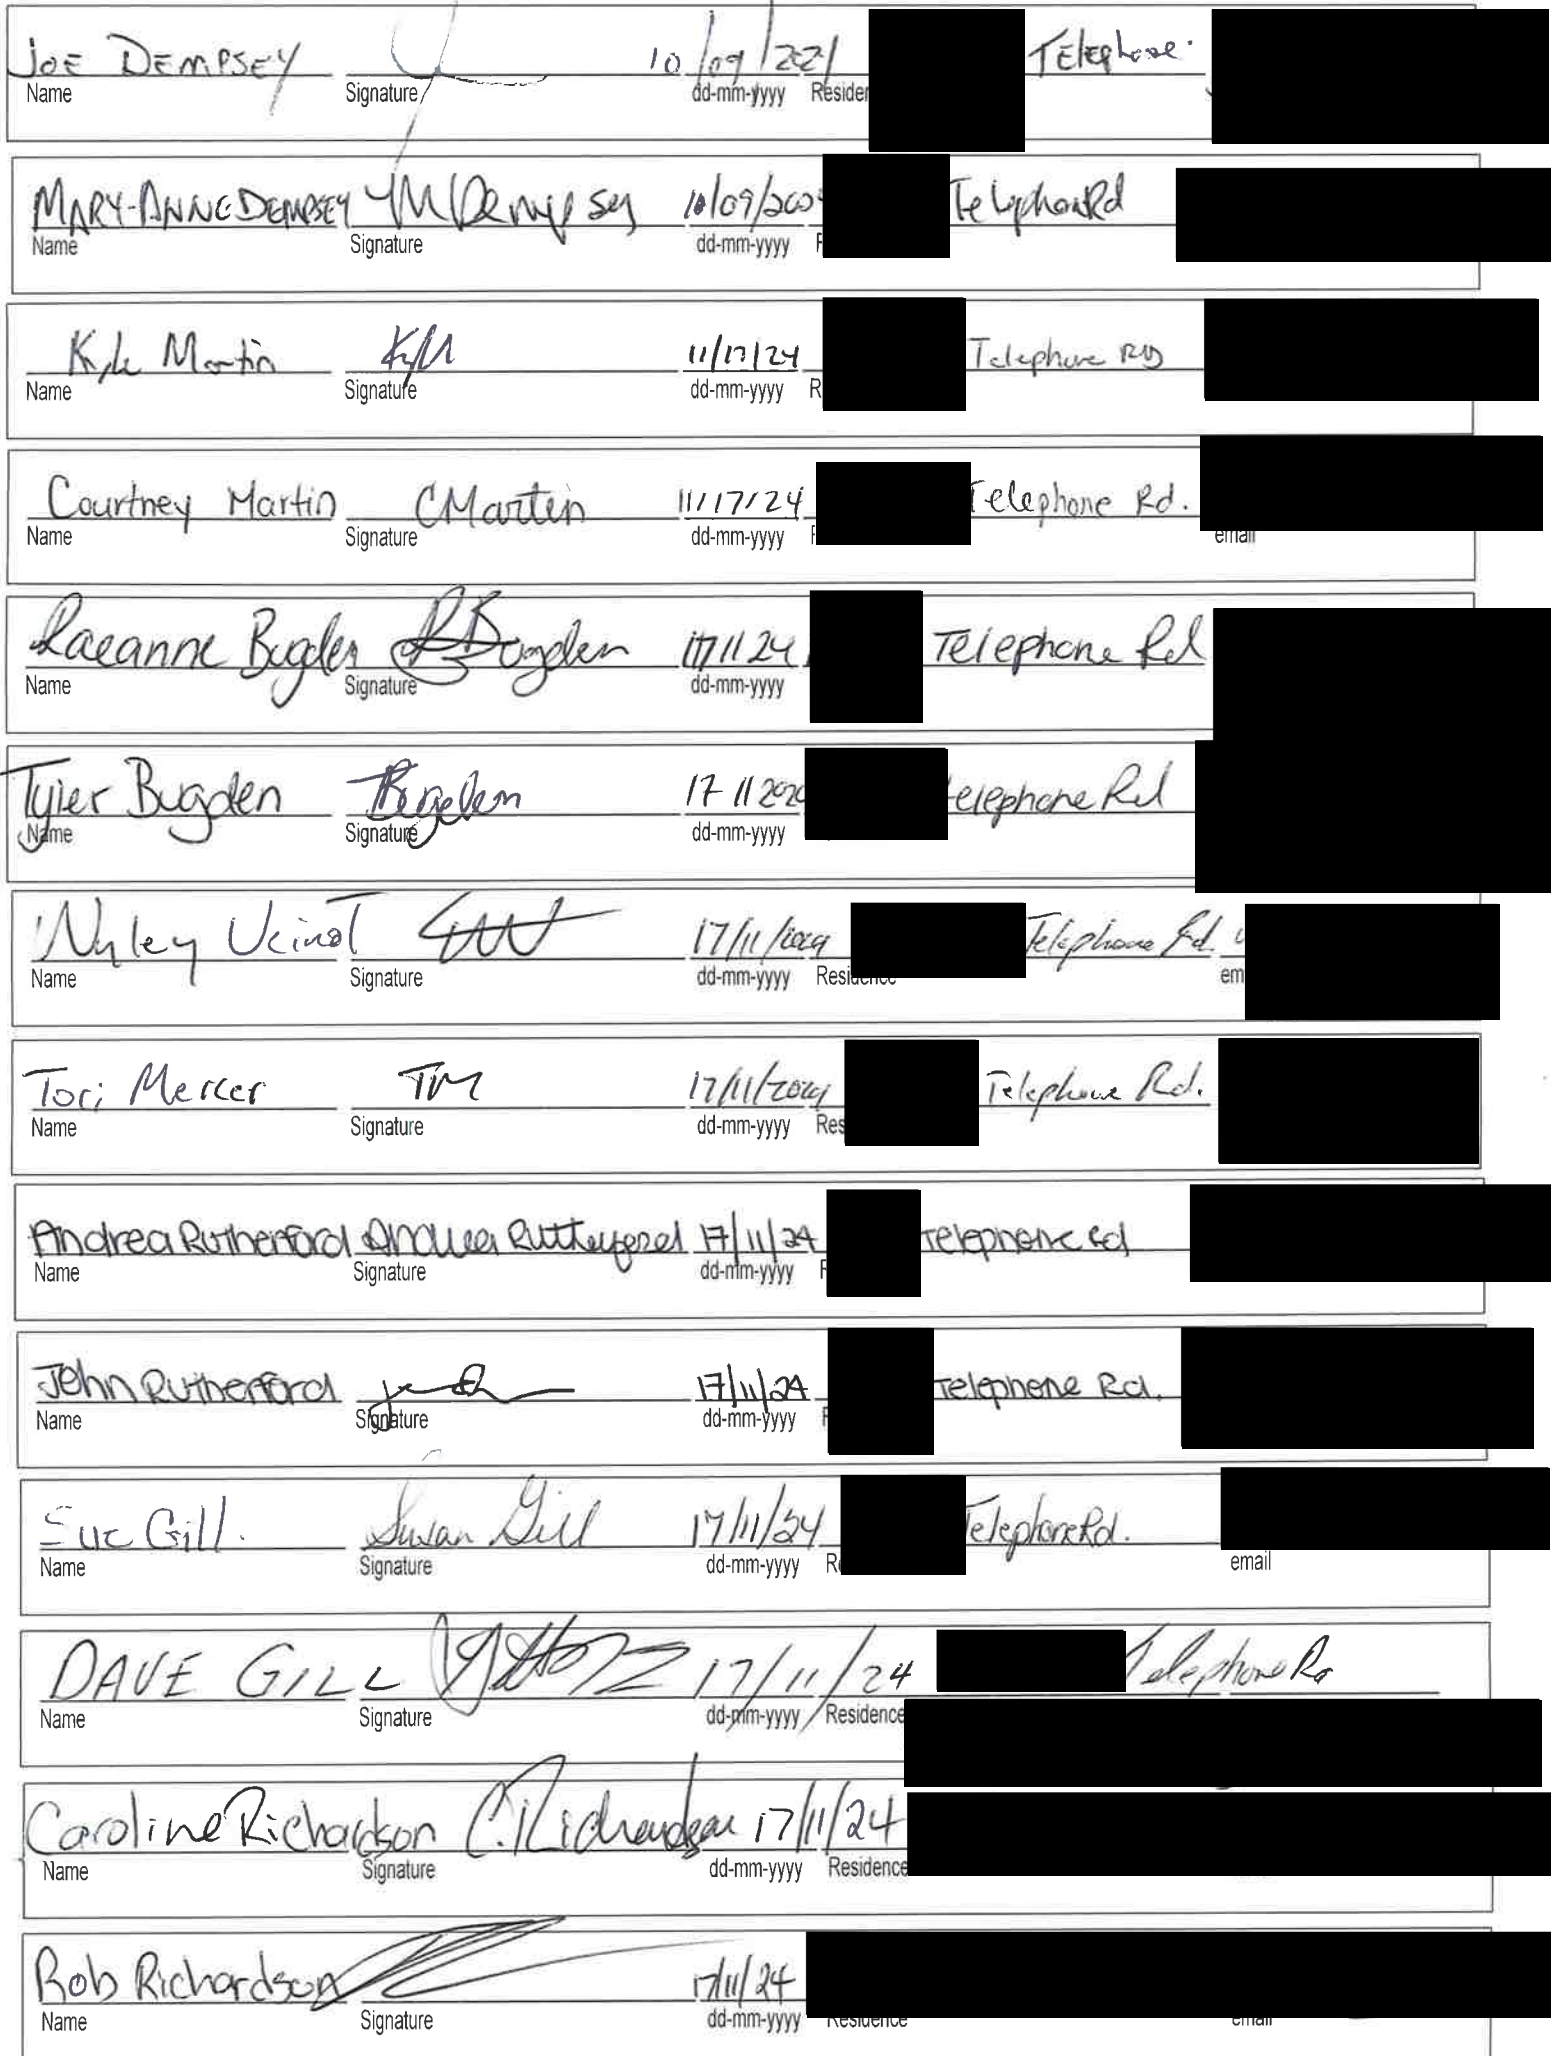 JOE DEMPSEY 10/09/2021 Telephone
Name Signature dd-mm-yyyy Residen
MARY-ANNE DEMPSEY M Dempsey 10/09/202 Telephone Rd
Name Signature dd-mm-yyyy
Kyle Martin KM 11/17/24 Telephone RD
Name Signature dd-mm-yyyy R
Courtney Martin CMartin 11/17/24 Telephone Rd.
Name Signature dd-mm-yyyy email
Raeanne Bugden RBugden 17 11 24 Telephone Rd
Name Signature dd-mm-yyyy
Tyler Bugden TBugden 17 11 202 telephone Rd
Name Signature dd-mm-yyyy
Wyley Veinot 17/11/2024 Telephone Rd.
Name Signature dd-mm-yyyy Residence em
Tori Mercer TM 17/11/2024 Telephone Rd.
Name Signature dd-mm-yyyy Res
Andrea Rutherford Andrea Rutherford 17/11/24 Telephone Rd
Name Signature dd-mm-yyyy
John Rutherford 17/11/24 Telephone Rd.
Name Signature dd-mm-yyyy
Sue Gill. Susan Gill 17/11/24 Telephone Rd.
Name Signature dd-mm-yyyy R email
DAVE GILL 17/11/24 Telephone Rd
Name Signature dd-mm-yyyy Residence
Caroline Richardson C. Richardson 17/11/24
Name Signature dd-mm-yyyy Residence
Rob Richardson 17/11/24
Name Signature dd-mm-yyyy Residence email